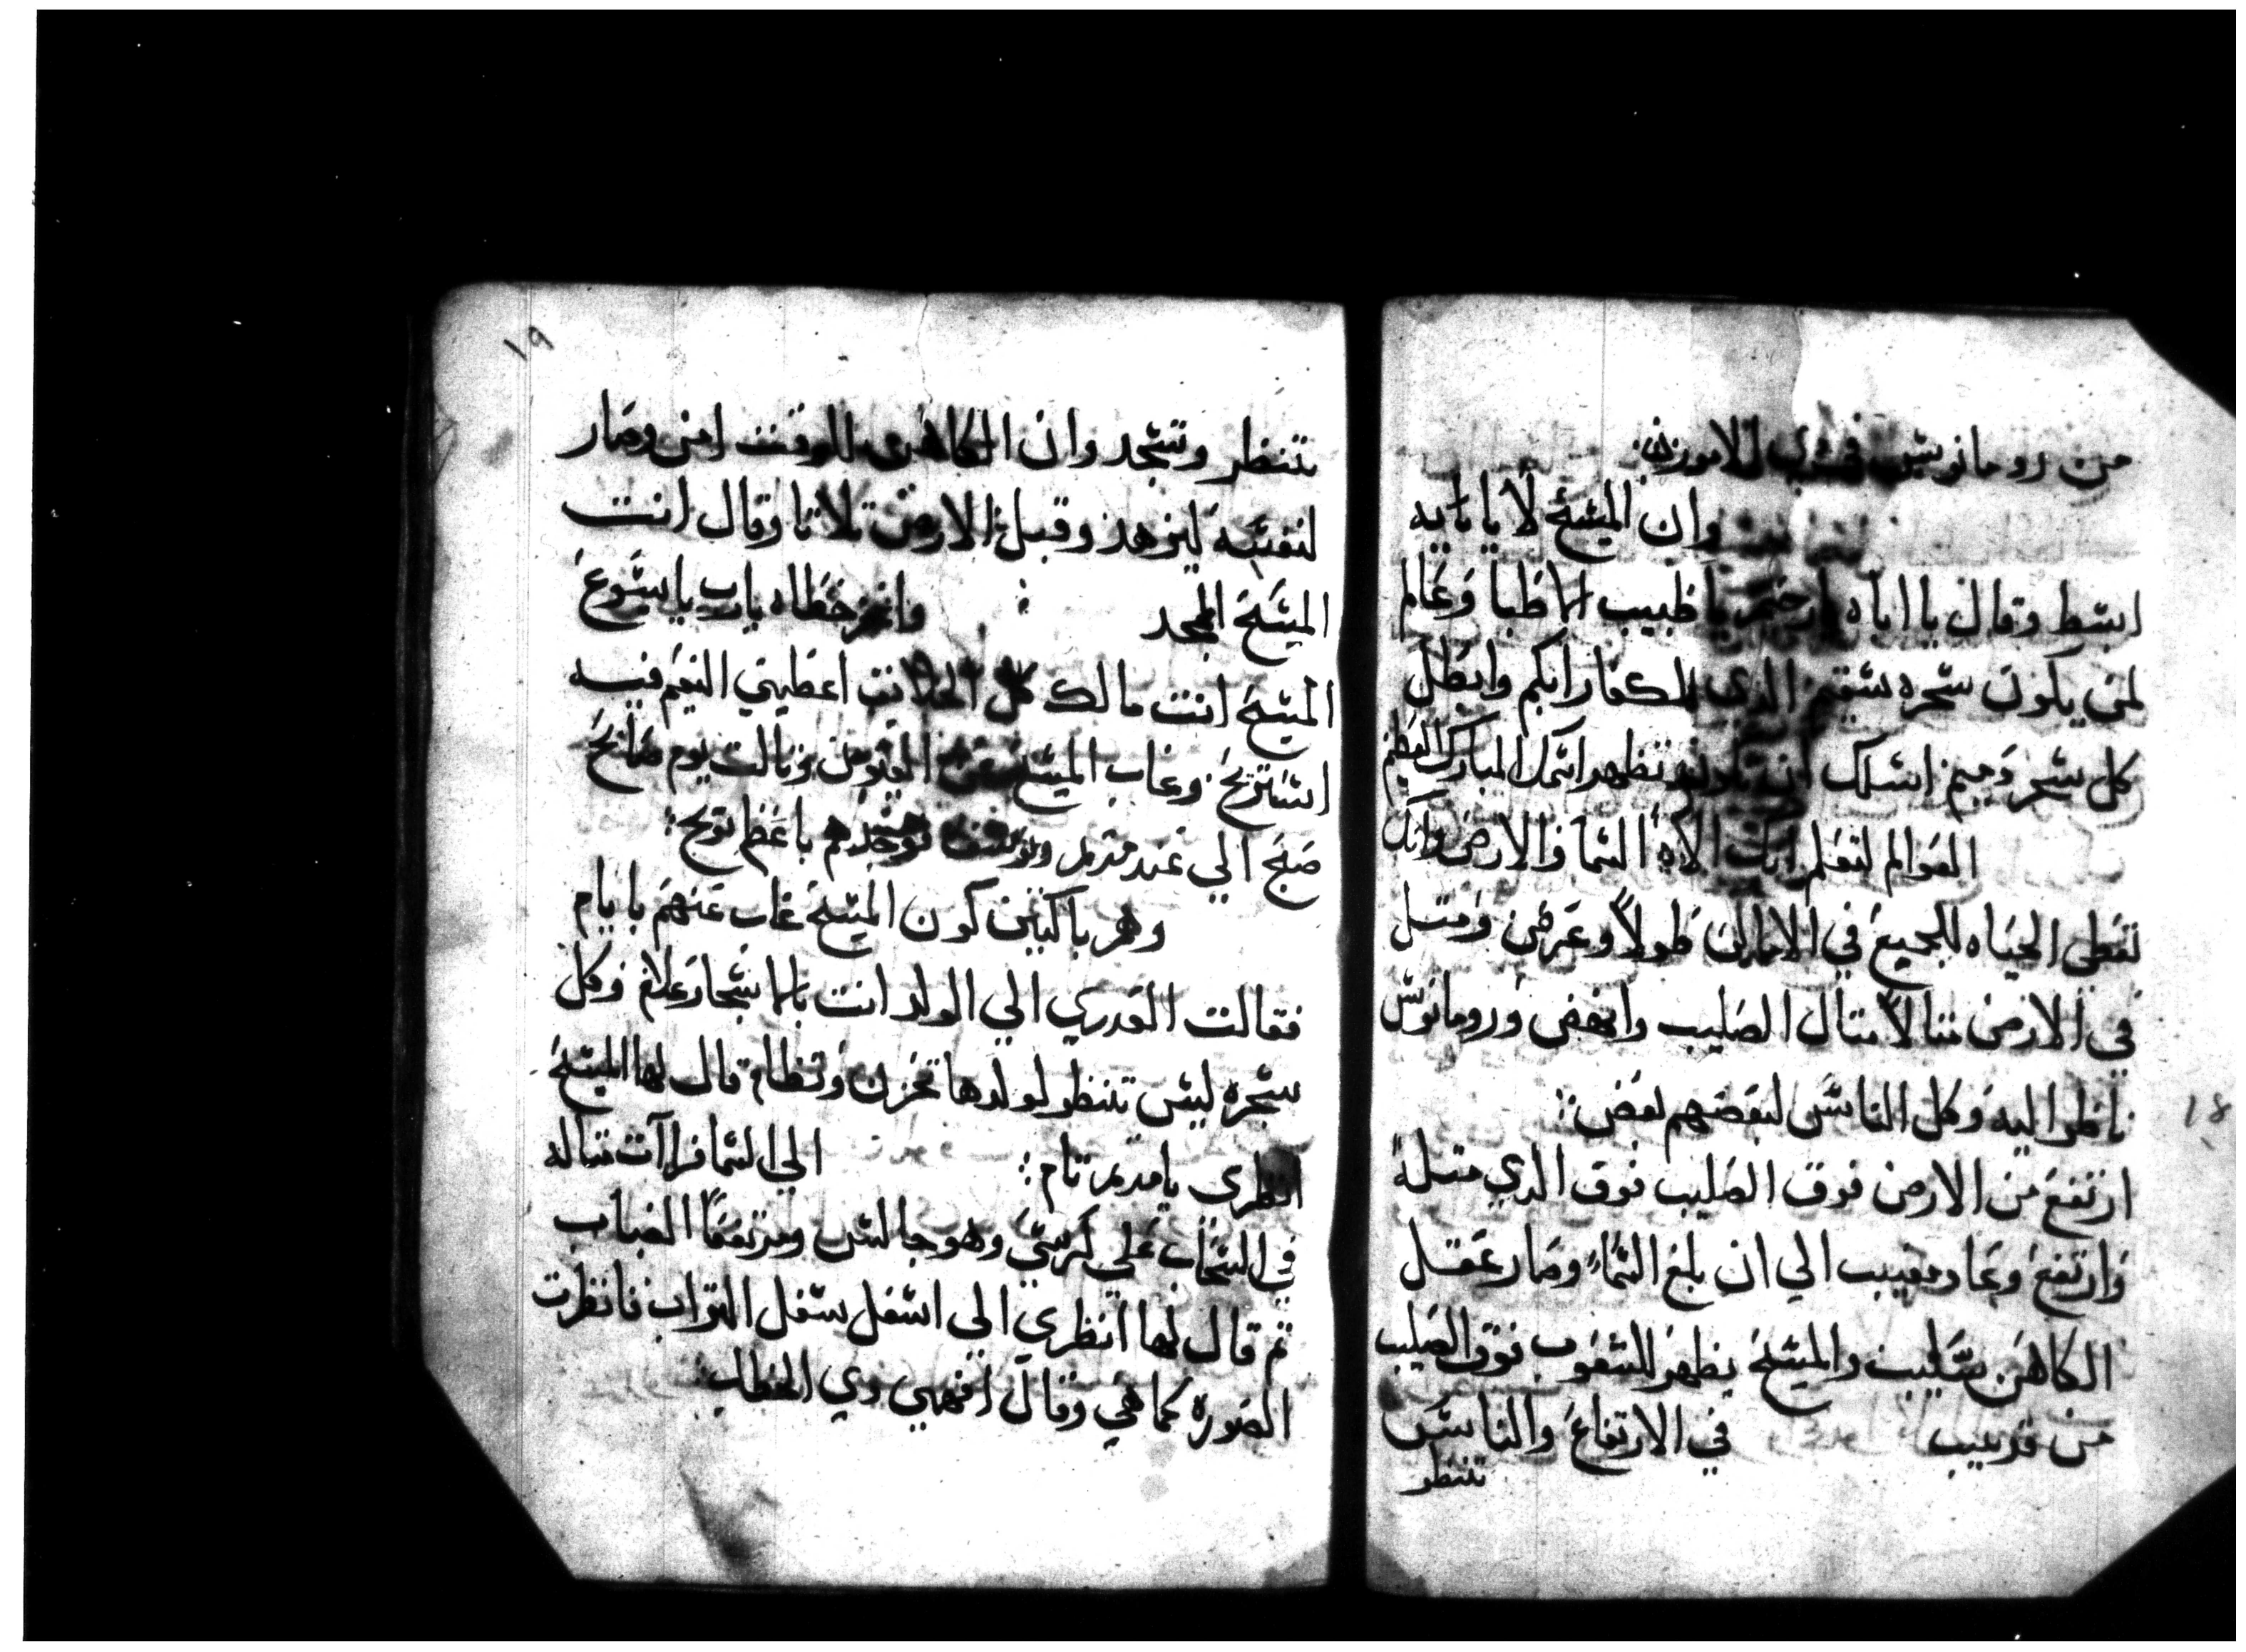 من رومانوس في الامور
وان المسيح لا يا يا يه
ابسط وقال يا اباه يا طبيب الاطبا وعالم
لمن يكون سحره سقيم الذي ابكم وابطل
كل سحر دميم اسلك ان تظهر اسمك المبارك العظيم
العوالم لتعلم انك الاه السما والارض وانك
تعطي الحياه للجميع في الاماكن طولاً وعرض ومتل
في الارض متالاً متال الصليب وانهض ورومانوس
ناظر اليه وكل الناس لبعضهم بعض
ارتفع من الارض فوق الصليب فوق الدي متله
وارتفع وعاد مغيب الي ان بلغ السماء وصار عقل
الكاهن سليب والمسيح يظهر للشعوب فوق الصليب
من قريب في الارتفاع والناس
تنظر
١٨
١٩
تنظر وتسجد وان الكاهن للوقت امن وصار
لنفسه يزهد وقبل الارض تلاتا وقال انت
المسيح الممجد واغفر خطاه يارب يا يسوع
المسيح انت مالك كل اعطيني النعم فيه
استريح وغاب المسيح عن العيون تالت يوم صايح
صبح الي عند مريم ويوسف فوجدهم باعظم نويح
وهم باكيين كون المسيح غاب عنهم بايام
فقالت العدري الي الولد انت بالاشجار علام وكل
شجره ليس تنظر لولدها تحزن وتظام قال لها المسيح
انظري يا مريم تام الي السما فرات متاله
في السحاب علي كرسي وهو جالس ومرتفعاً الضباب
تم قال لها انظري الي اسفل سفل التراب فانظرت
الصوره كما هي وقال افهمي دي الخطاب